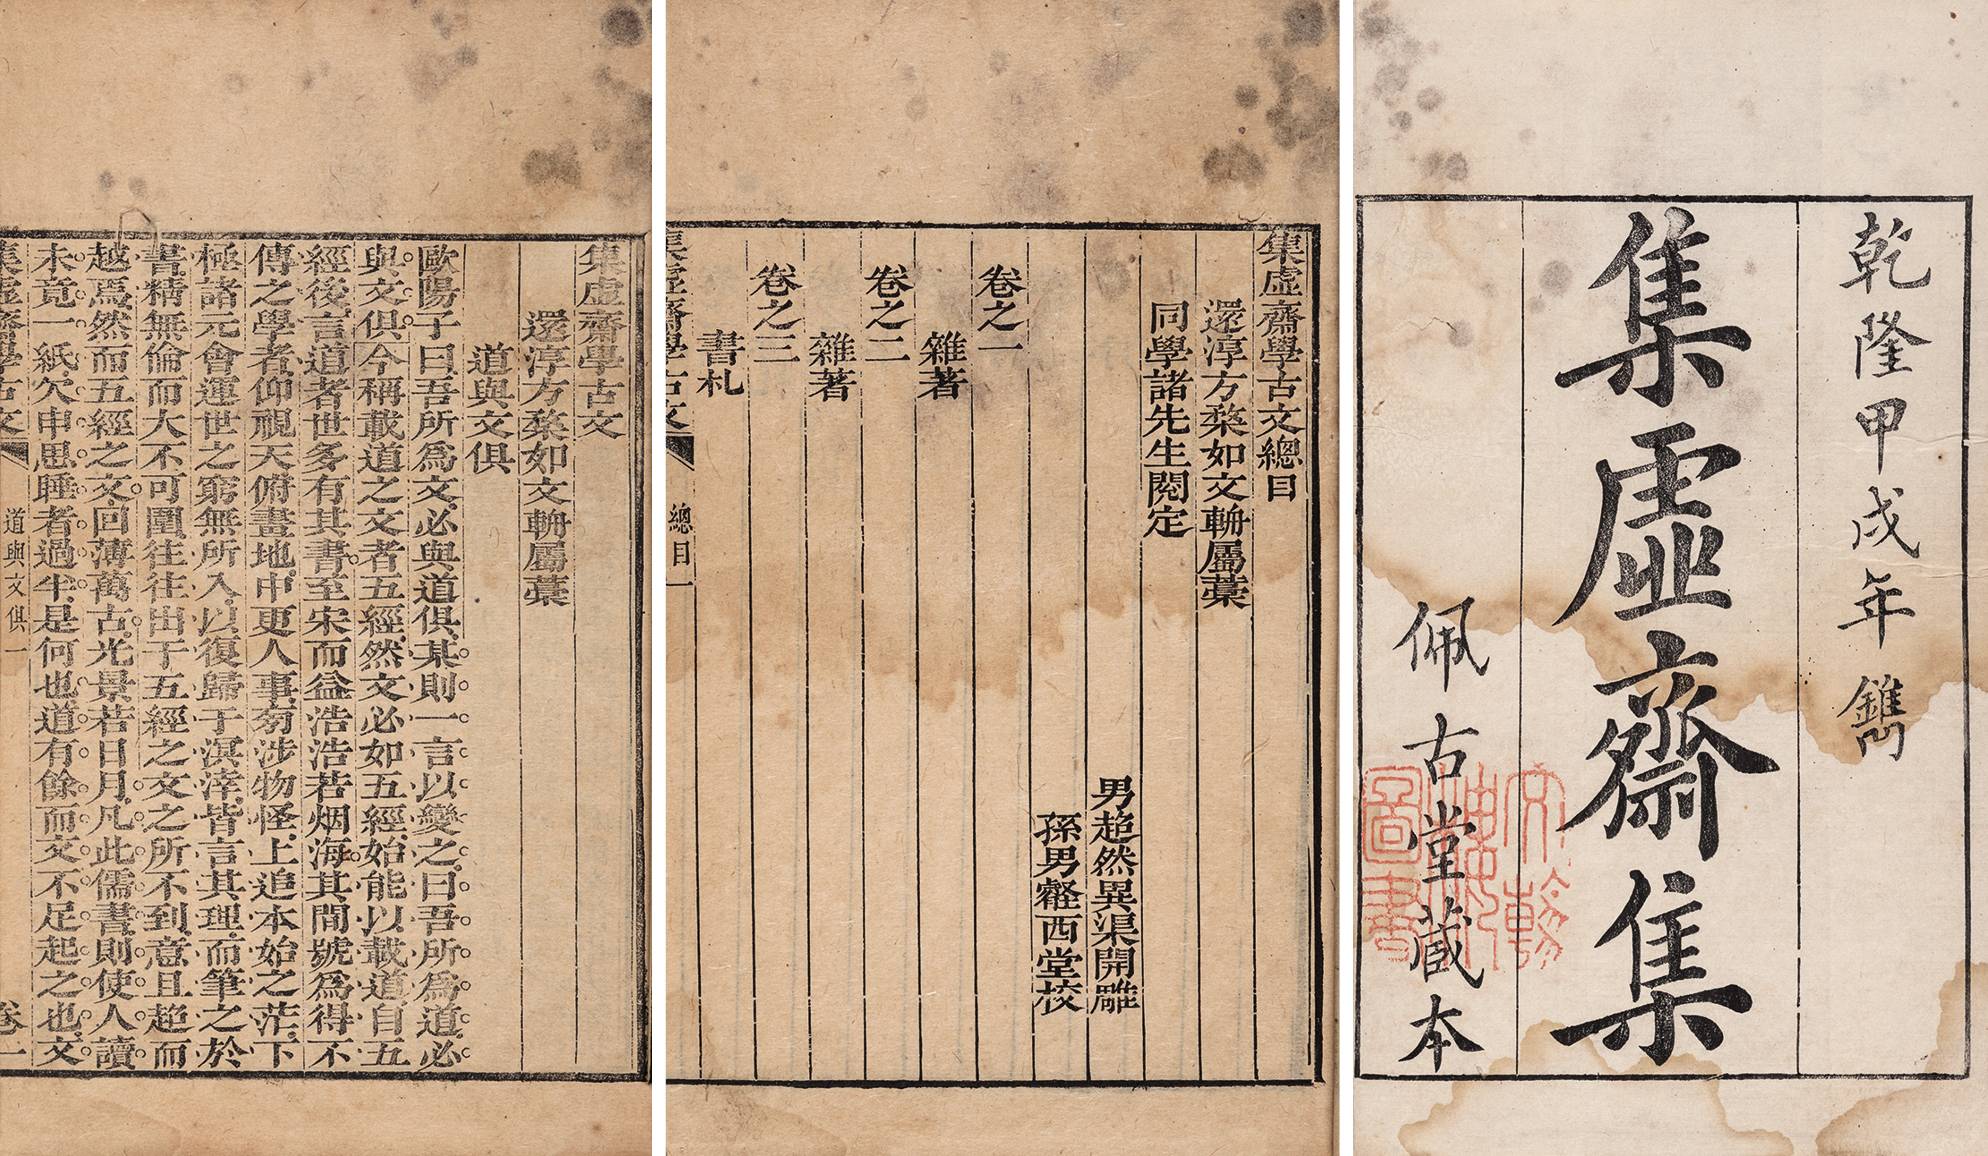 乾隆甲戌年鐫
集虛齋集
佩古堂藏本
集虛齋學古文總目
還淳方棻如文輈屬藁
同學諸先生閱定
男超然異渠開雕
孫男㽥西堂校
卷之一
雜著
卷之二
雜著
卷之三
書札
集虛齋學古文
總目一
集虛齋學古文
還淳方棻如文輈屬藁
道與文俱
歐陽子曰吾所爲文必與道俱某則一言以變之曰吾所爲道必
與文俱今稱載道之文者五經然文必如五經始能以載道自五
經後言道者世多有其書至宋而益浩浩若烟海其間號爲得不
傳之學者仰視天俯畫地中更人事芴涉物怪上追本始之茫下
極諸元會運世之窮無所入以復歸于溟涬皆言其理而筆之於
書精無倫而大不可圍往往出于五經之文之所不到意且超而
越焉然而五經之文回薄萬古光景若日月凡此儒書則使人讀
未竟一紙欠申思睡者過半是何也道有餘而文不足起之也文
集虛齋學古文
道與文俱一
卷一